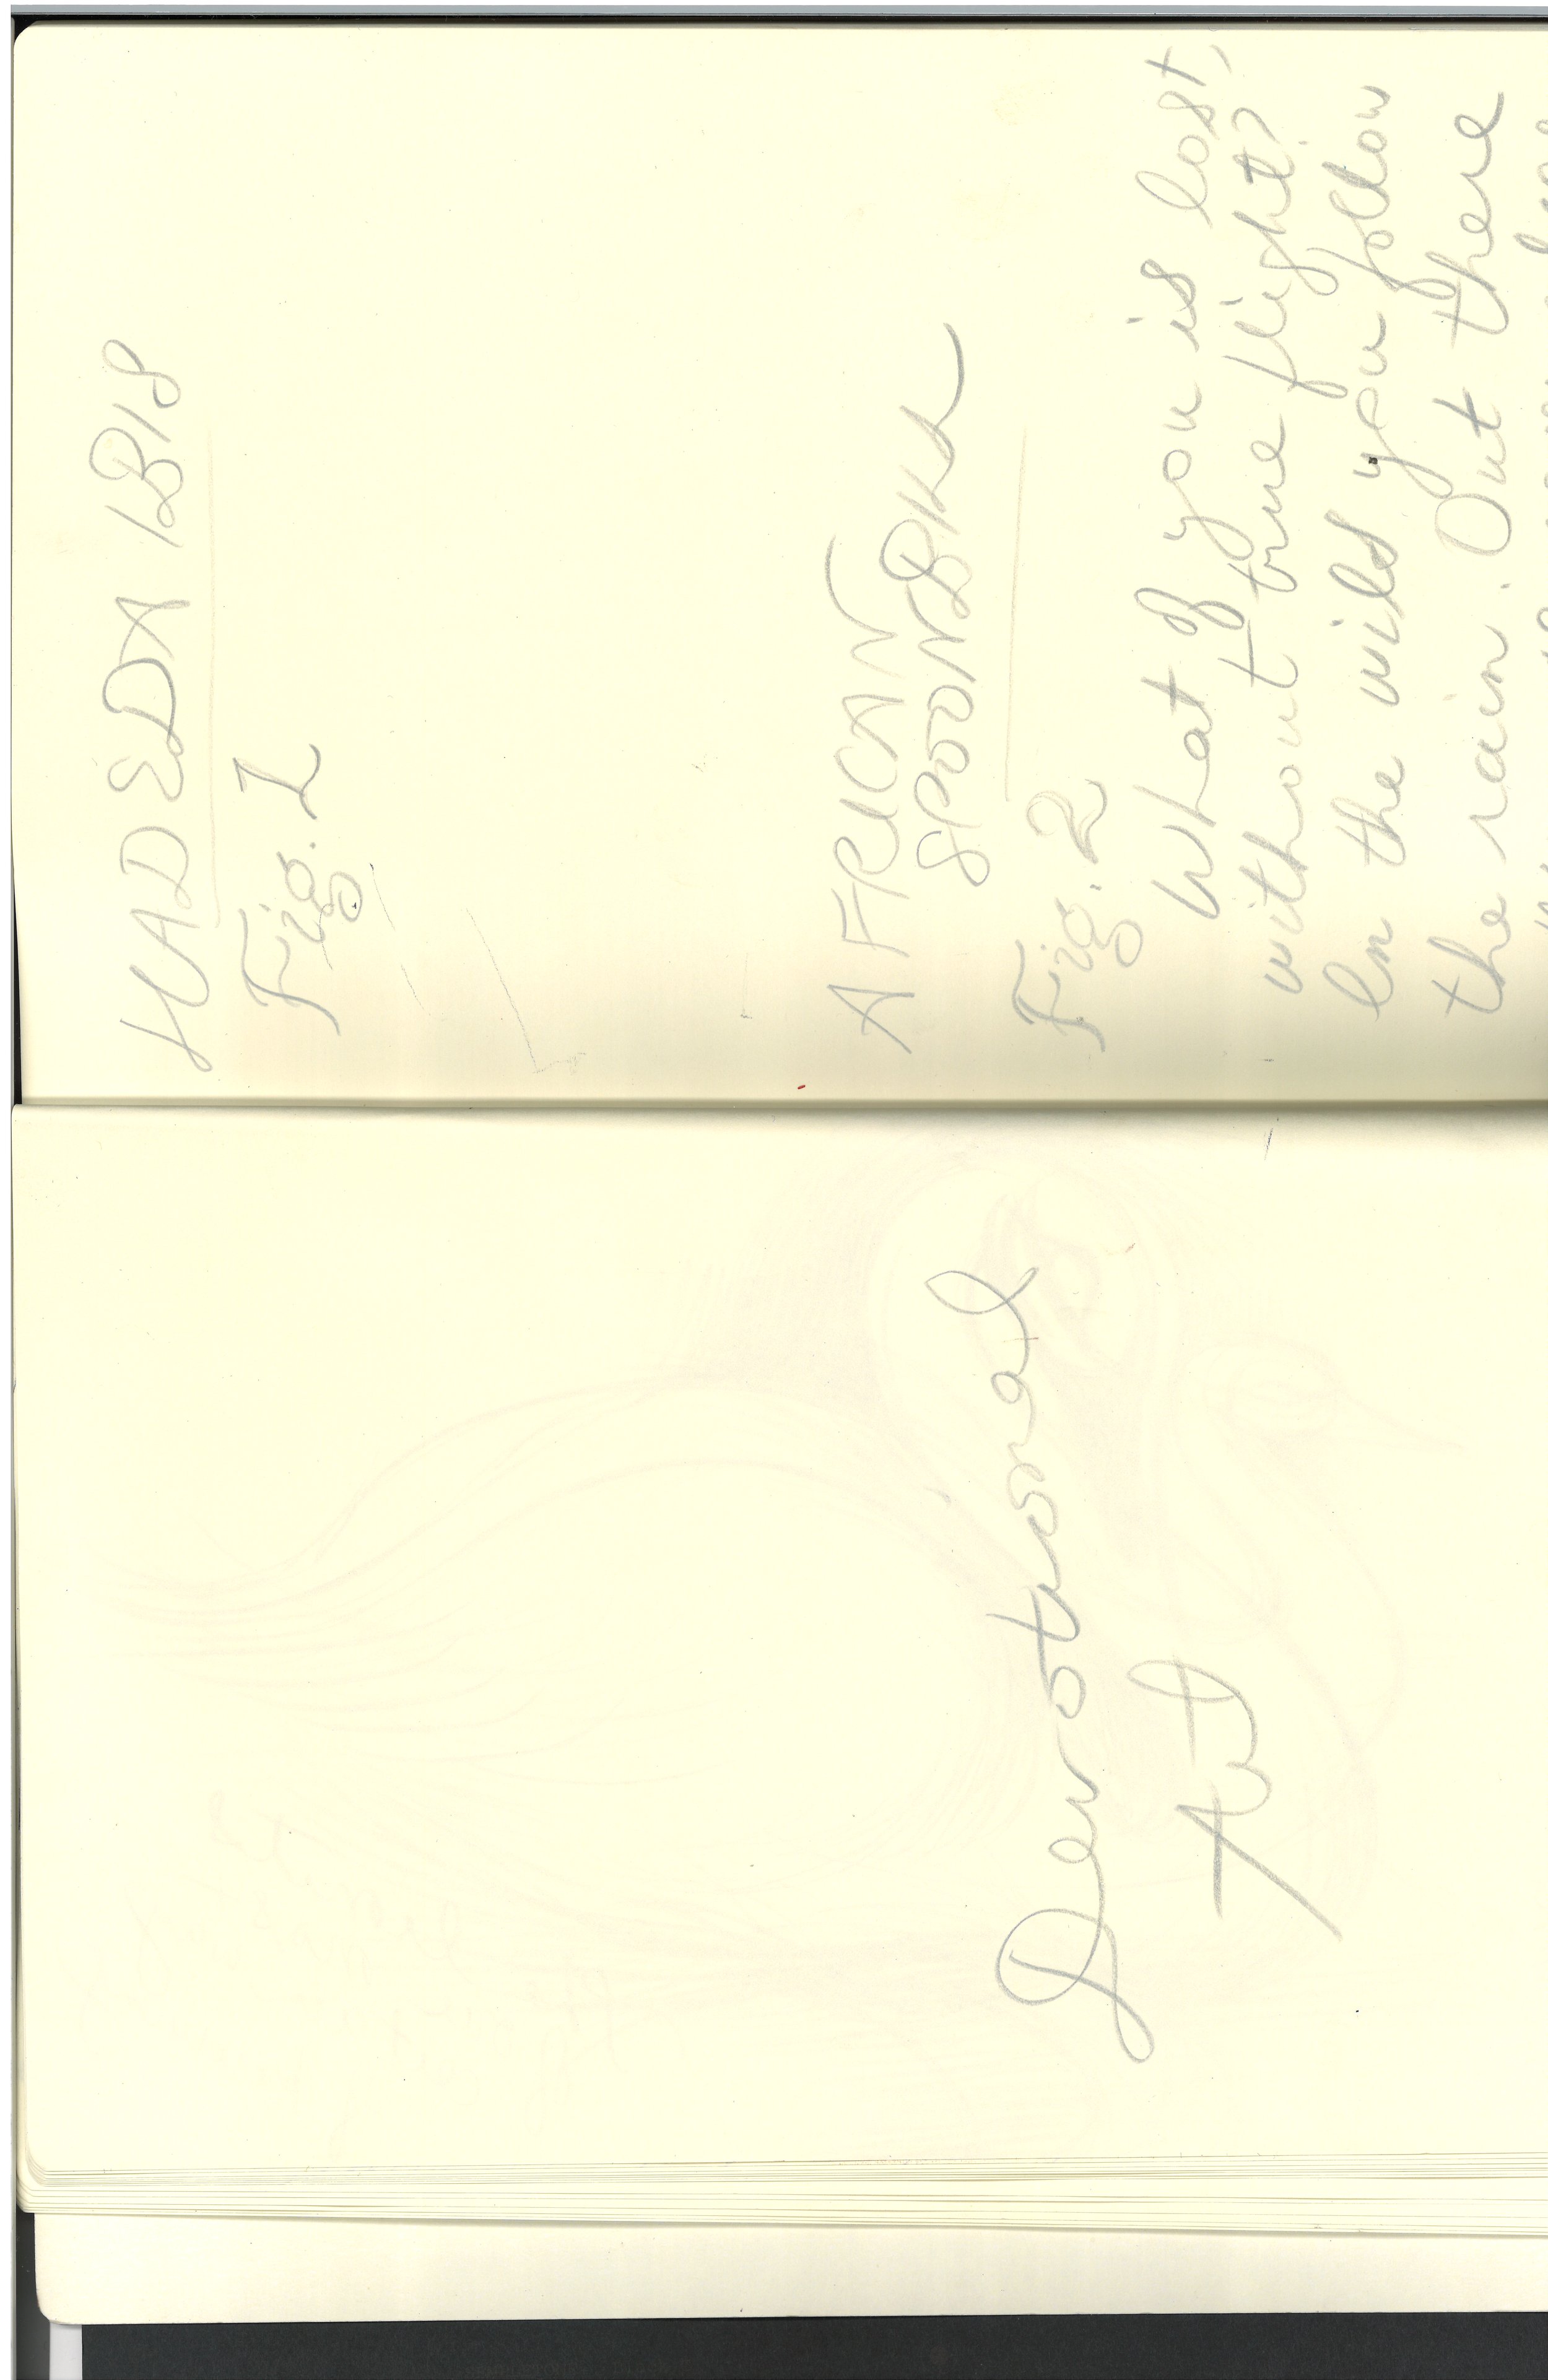 Devotional
Art
HADEDA IBIS
Fig. 1
AFRICAN
SPOONBILL
Fig. 2
What of you is lost,
without true flight?
In the wild you follow
the rain. Out there